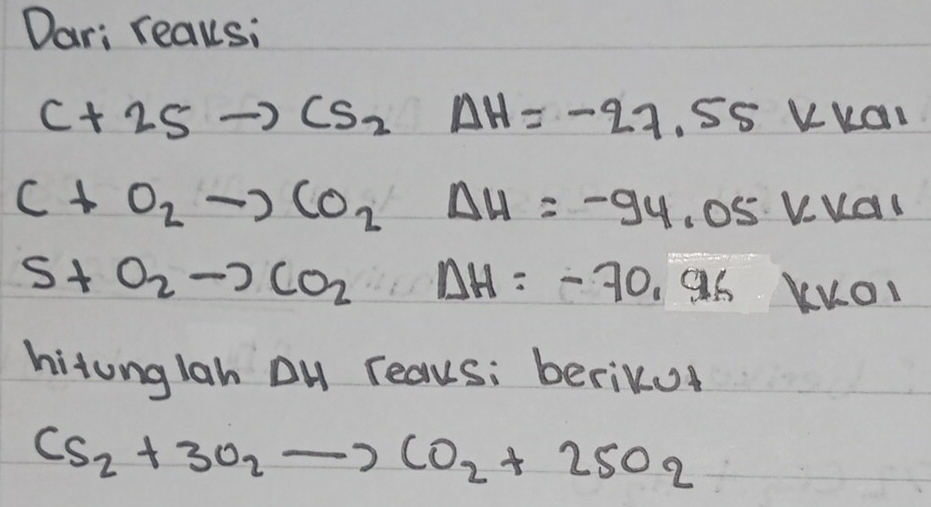 Dari reaksi
C + 2S → CS₂ ΔH = -27.55 kkal
C + O₂ → CO₂ ΔH = -94.05 kkal
S + O₂ → CO₂ ΔH = -70.96 kkal
hitunglah ΔH reaksi berikut
CS₂ + 3O₂ → CO₂ + 2SO₂